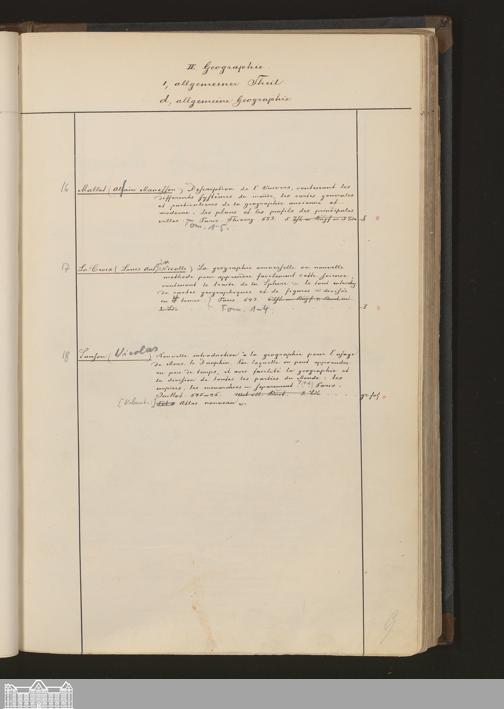 II. Geographie
1, allgemeiner Theil
d, allgemeine Geographie
16 Mallet (Allain Manesson) Description de l'Univers, contenant les
differents systêmes du monde, les cartes generales
et particulieres de la geographie ancienne et
moderne: les plans et les profils des principales
villes Paris Thierry 683. 5
Tom. 1-5.
17 La Croix (Louis Ant. Nicolle) La geographie universelle ou nouvelle
methode pour apprendre facilement cette science
contenant le traité de la Sphere le tout
de cartes geographiques et de figures divisée
en 4 tomes. Paris 693
Tom. 1-4. 8
18 Sanson (Nicolas) Nouvelle introduction à la geographie pour l'usage
de Mons. le Dauphin. Par laquelle on peut apprendre
en peu de temps, et avec facilité la geographie et
la division de toutes les parties du Monde: les
empires, les monarchies Paris.
Jaillot. 695 96. gr fol
Atlas nouveau